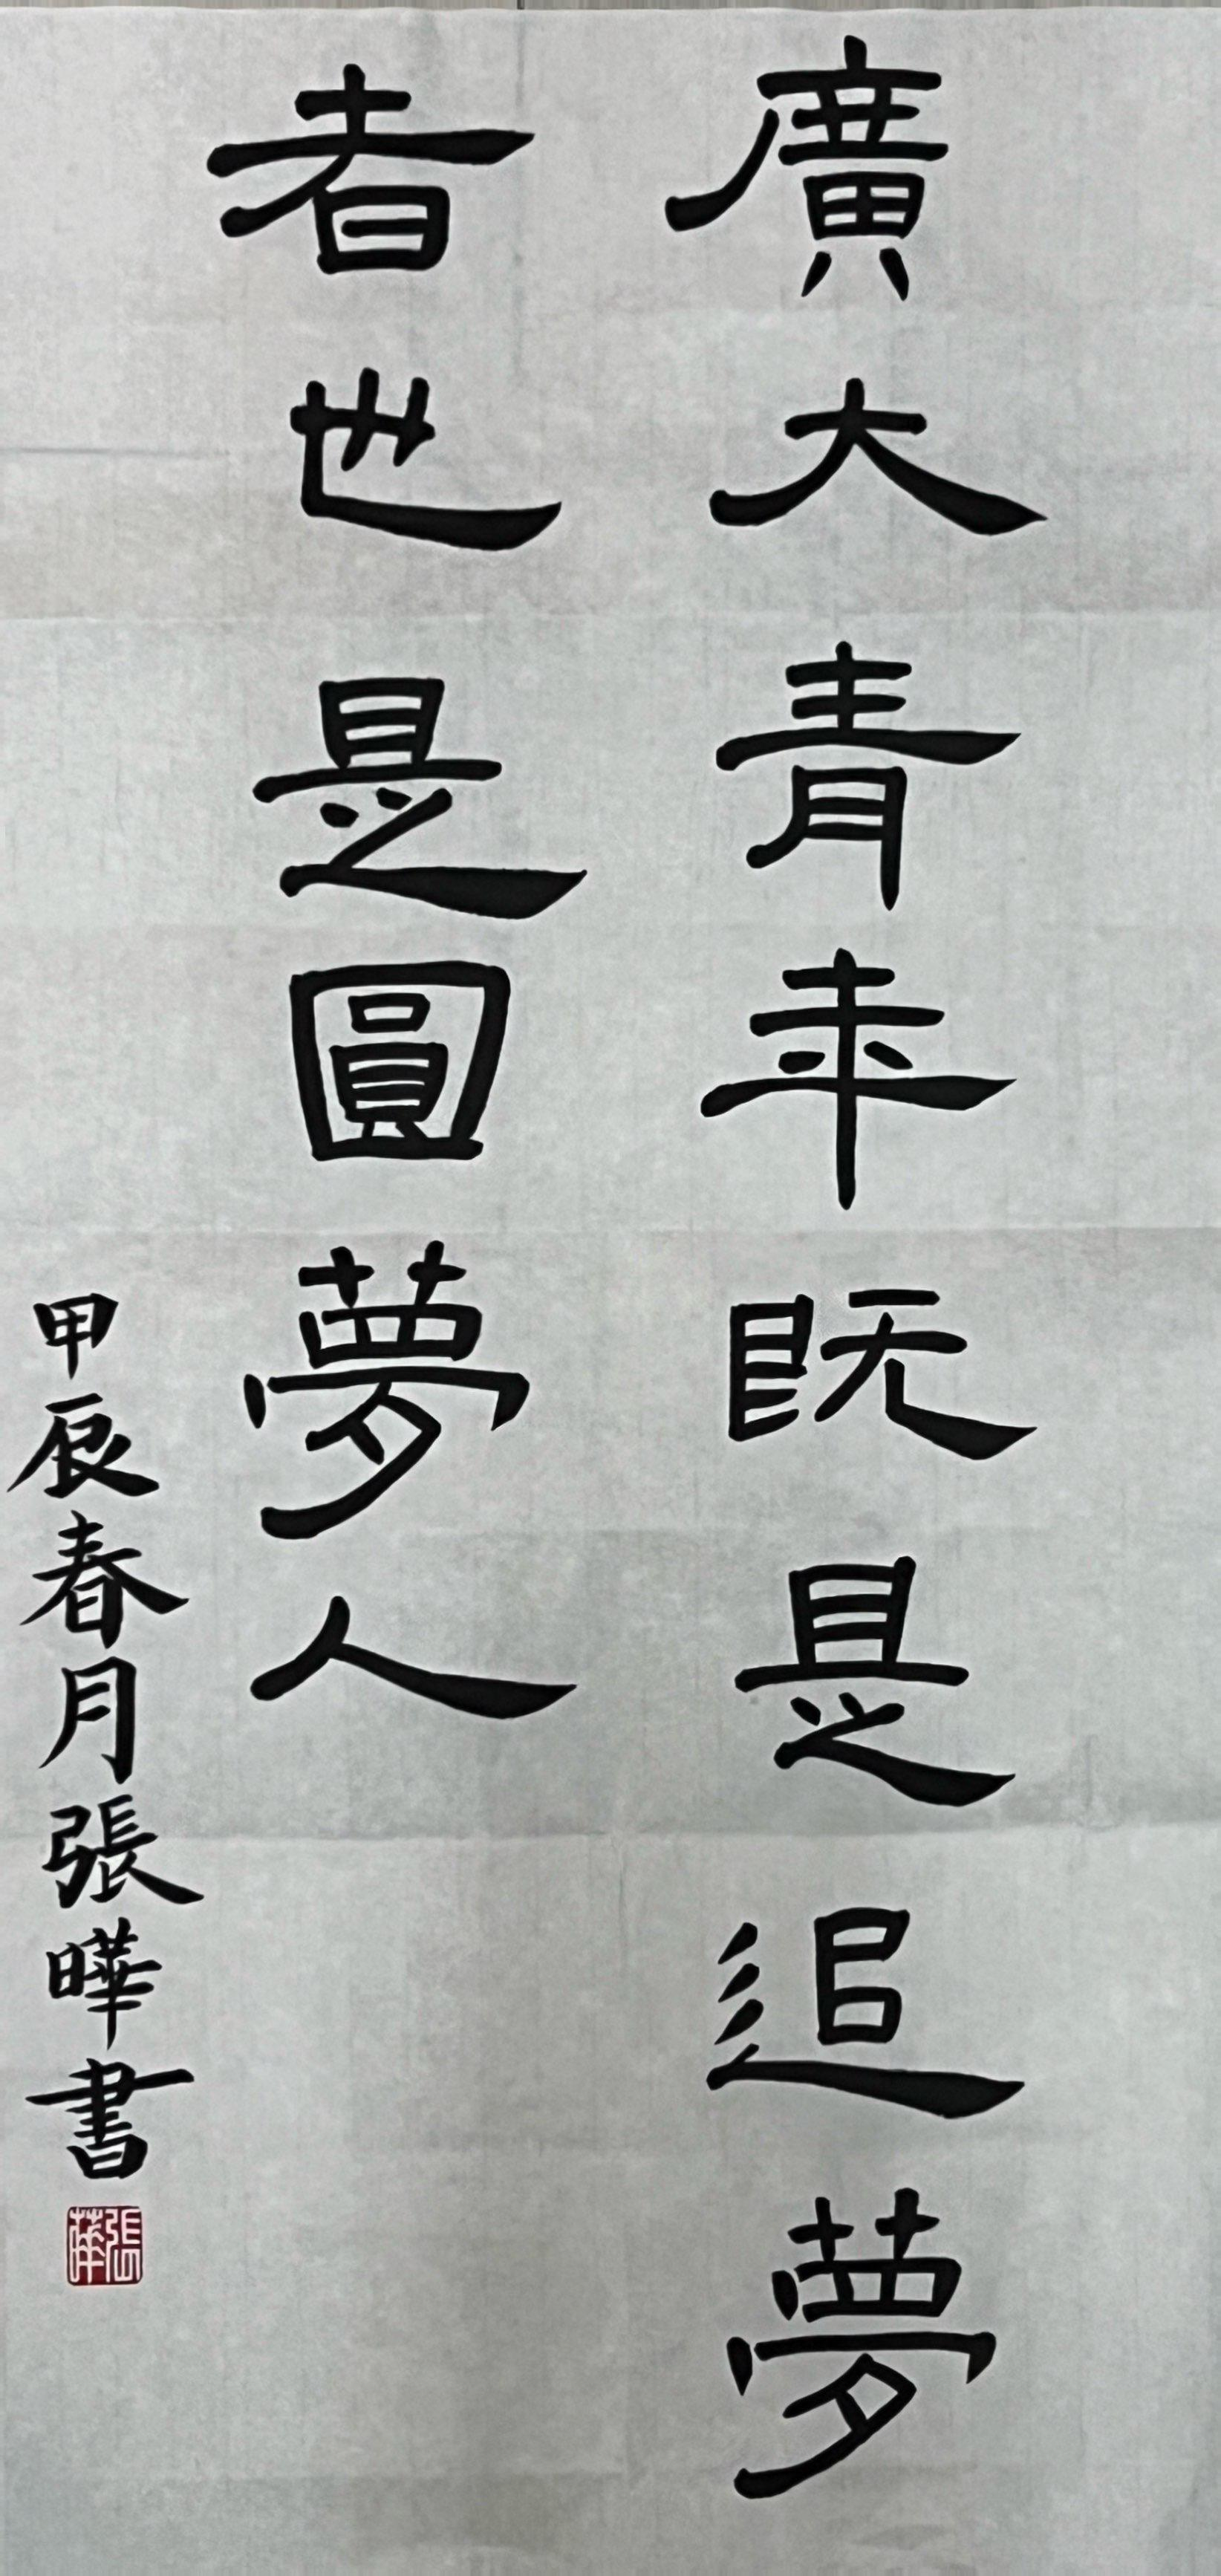 廣大青年既是追夢
者也是圓夢人
甲辰春月張曄書
張曄